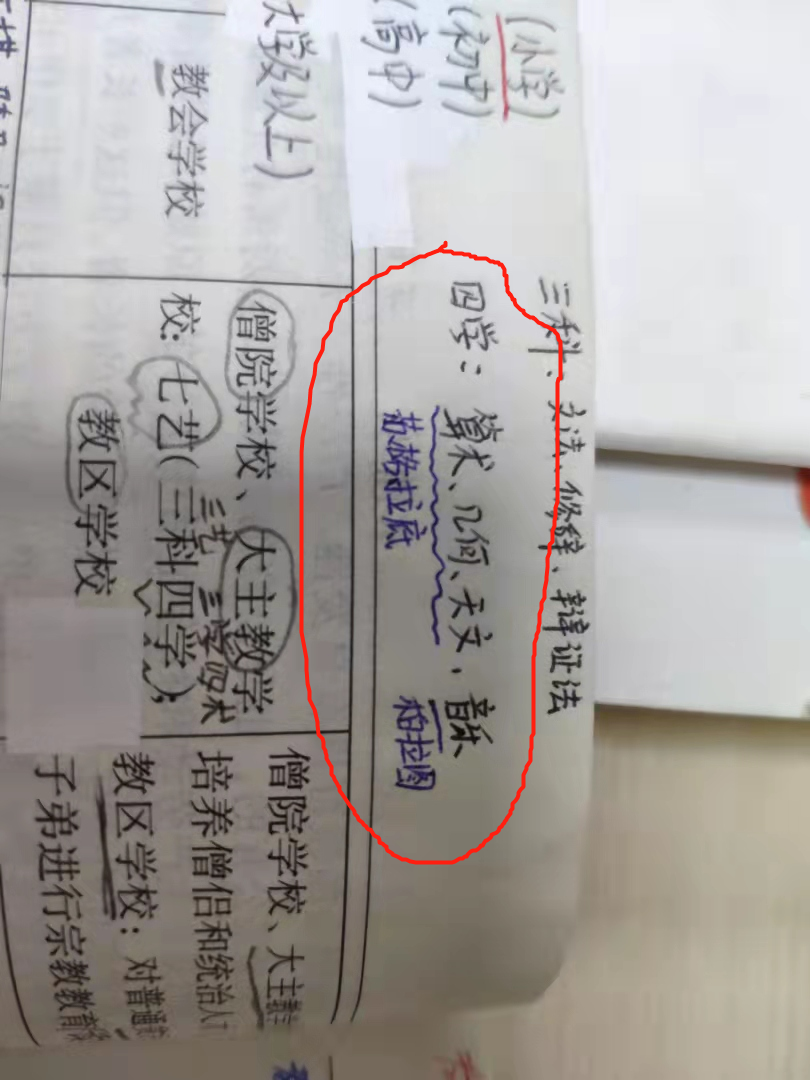 (小学)
(初中)
(高中)
大学及以上)
教会学校
三科、文法、修辞、辩证法
四学：算术、几何、天文，音乐
苏格拉底
柏拉图
僧院学校、大主教学
校：七艺(三科四学)；
三艺
三学四术
教区学校
僧院学校、大主教
培养僧侣和统治人
教区学校：对普通
子弟进行宗教教育